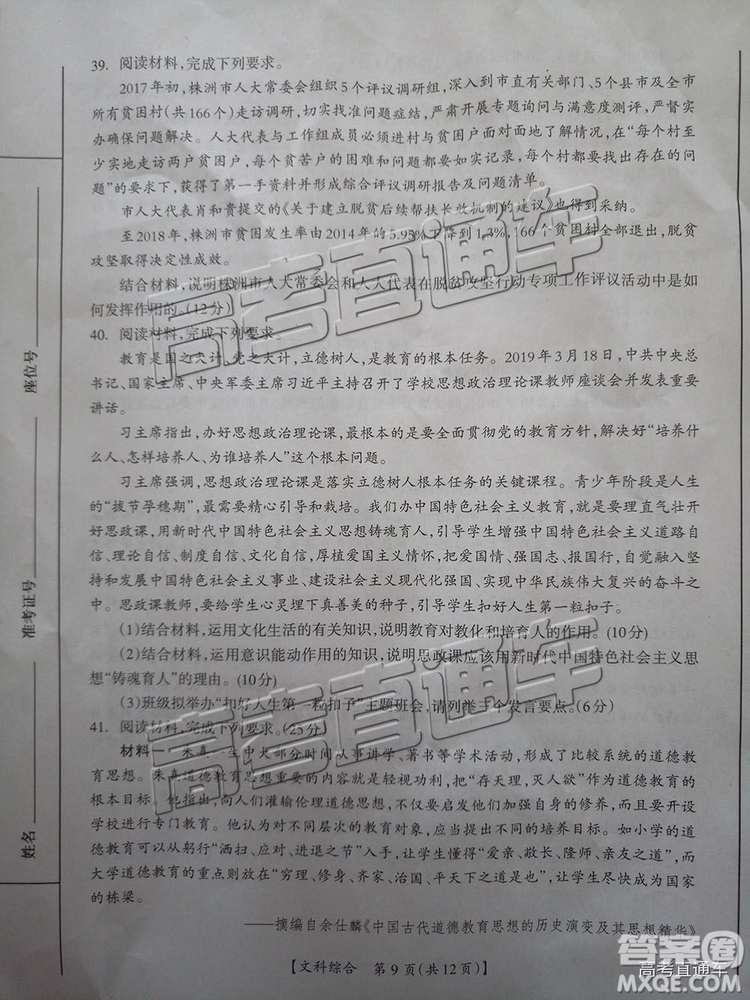 39. 阅读材料,完成下列要求。
2017年初,株洲市人大常委会组织5个评议调研组,深入到市直有关部门、5个县市及全市
所有贫困村(共166个)走访调研,切实找准问题症结,严肃开展专题询问与满意度测评,严督实
办确保问题解决。人大代表与工作组成员必须进村与贫困户面对面地了解情况,在“每个村至
少实地走访两户贫困户,每个贫苦户的困难和问题都要如实记录,每个村都要查找存在的问
题”的要求下,获得了第一手资料并形成综合评议调研报告及问题清单。
市人大代表肖和贵提交的《关于建立脱贫后续帮扶长效机制的建议》也得到采纳。
至2018年,株洲市贫困发生率由2014年的5.95%下降到1.3%,166个贫困村全部退出,脱贫
攻坚取得决定性成效。
结合材料,说明株洲市人大常委会和人大代表在脱贫攻坚行动专项工作评议活动中是如
何发挥作用的。(12分)
40. 阅读材料,完成下列要求。
教育是国之大计,党之大计,立德树人,是教育的根本任务。2019年3月18日,中共中央总
书记、国家主席、中央军委主席习近平主持召开了学校思想政治理论课教师座谈会并发表重要
讲话。
习主席指出,办好思想政治理论课,最根本的是要全面贯彻党的教育方针,解决好“培养什
么人、怎样培养人、为谁培养人”这个根本问题。
习主席强调,思想政治理论课是落实立德树人根本任务的关键课程。青少年阶段是人生
的“拔节孕穗期”,最需要精心引导和栽培。我们办中国特色社会主义教育,就是要理直气壮开
好思政课,用新时代中国特色社会主义思想铸魂育人,引导学生增强中国特色社会主义道路自
信、理论自信、制度自信、文化自信,厚植爱国主义情怀,把爱国情、强国志、报国行,自觉融入坚
持和发展中国特色社会主义事业、建设社会主义现代化强国、实现中华民族伟大复兴的奋斗之
中。思政课教师,要给学生心灵埋下真善美的种子,引导学生扣好人生第一粒扣子。
(1)结合材料,运用文化生活的有关知识,说明教育对教化和培育人的作用。(10分)
(2)结合材料,运用意识能动作用的知识,说明思政课应该用新时代中国特色社会主义思
想“铸魂育人”的理由。(10分)
(3)班级拟举办“扣好人生第一粒扣子”主题班会,请列举三个发言要点。(6分)
41. 阅读材料,完成下列要求。(25分)
材料一 朱熹一生中大部分时间从事讲学、著书等学术活动,形成了比较系统的道德教
育思想。朱熹道德教育思想最重要的内容就是轻利重义,把“存天理,灭人欲”作为道德教育的
根本目标。他指出,向人们灌输伦理道德思想,不仅要启发他们加强自身的修养,而且要开设
学校进行专门教育。他认为对不同层次的教育对象,应当提出不同的培养目标。如小学的道
德教育可以从躬行“洒扫、应对、进退之节”入手,让学生懂得“爱亲、敬长、隆师、亲友之道”,而
大学道德教育的重点则放在“穷理、修身、齐家、治国、平天下之道是也”,把学生培养成为国家
的栋梁。
——摘编自余仕麟《中国古代道德教育思想的历史演变及其思想精华》
【文科综合 第9页(共12页)】
座位号
准考证号
姓名
高考直通车
高考直通车
答案圈
高考直通车
MXQE.COM